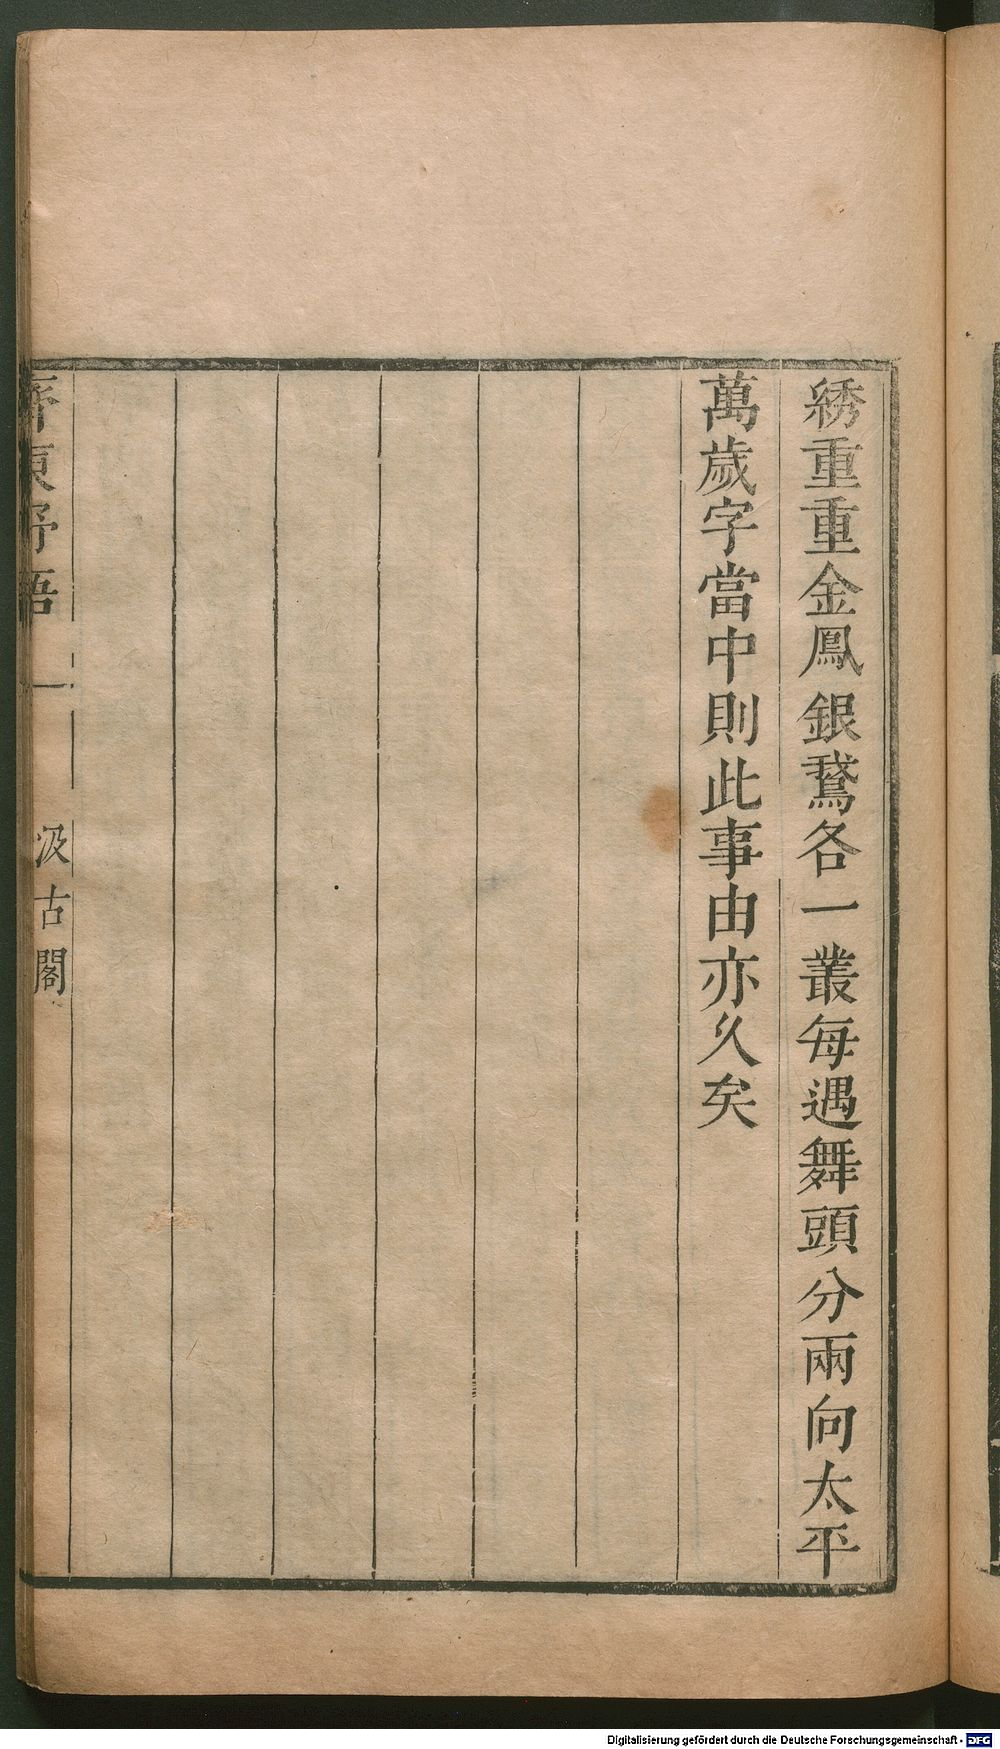 綉重重金鳳銀鵞各一叢每遇舞頭分兩向太平
萬歲字當中則此事由亦久矣
齊東野語
一
汲古閣
Digitalisierung gefördert durch die Deutsche Forschungsgemeinschaft - DFG